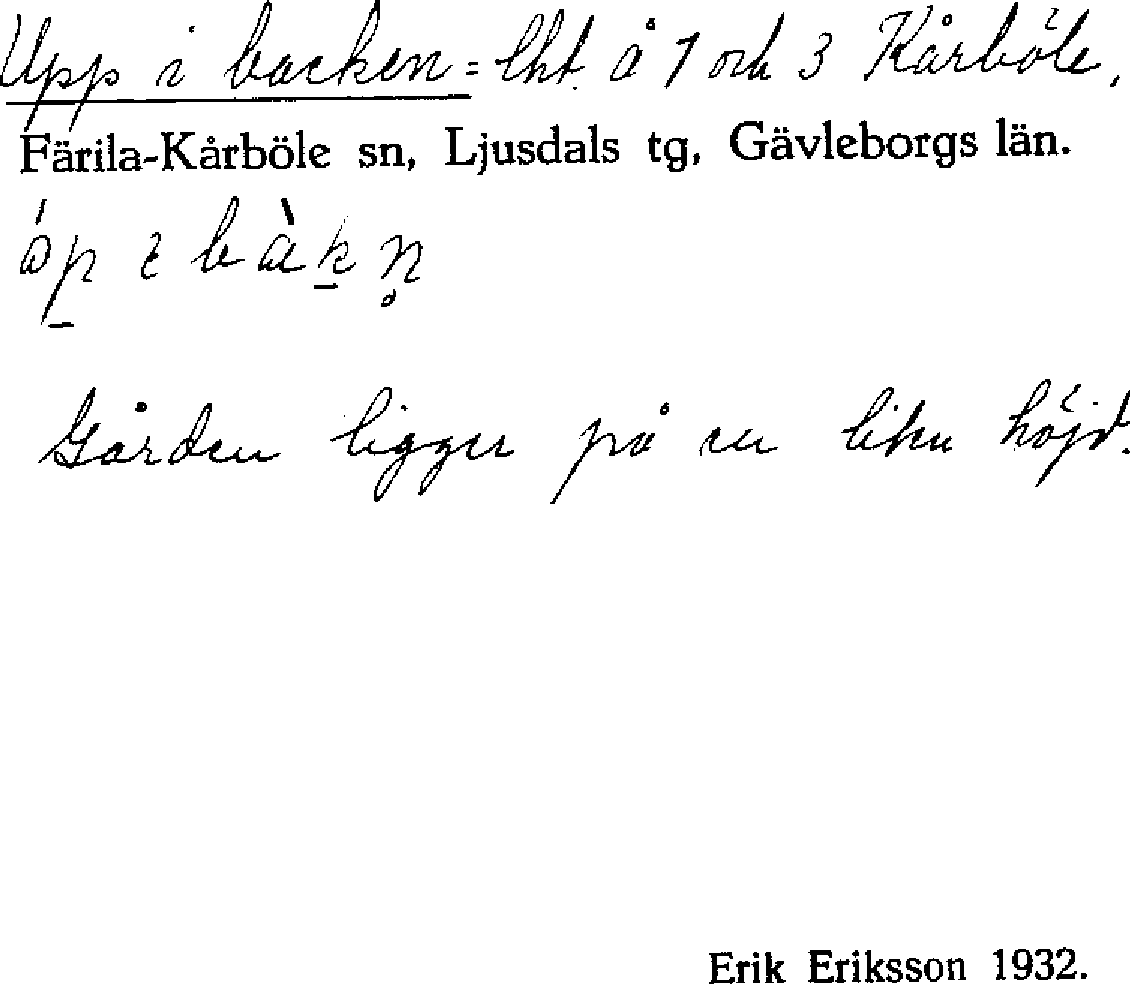 Upp i backen = lht. å 1 och 3 Kårböle,
Färila-Kårböle sn, Ljusdals tg, Gävleborgs län.
i
Gården ligger på en liten höjd.
Erik Eriksson 1932.